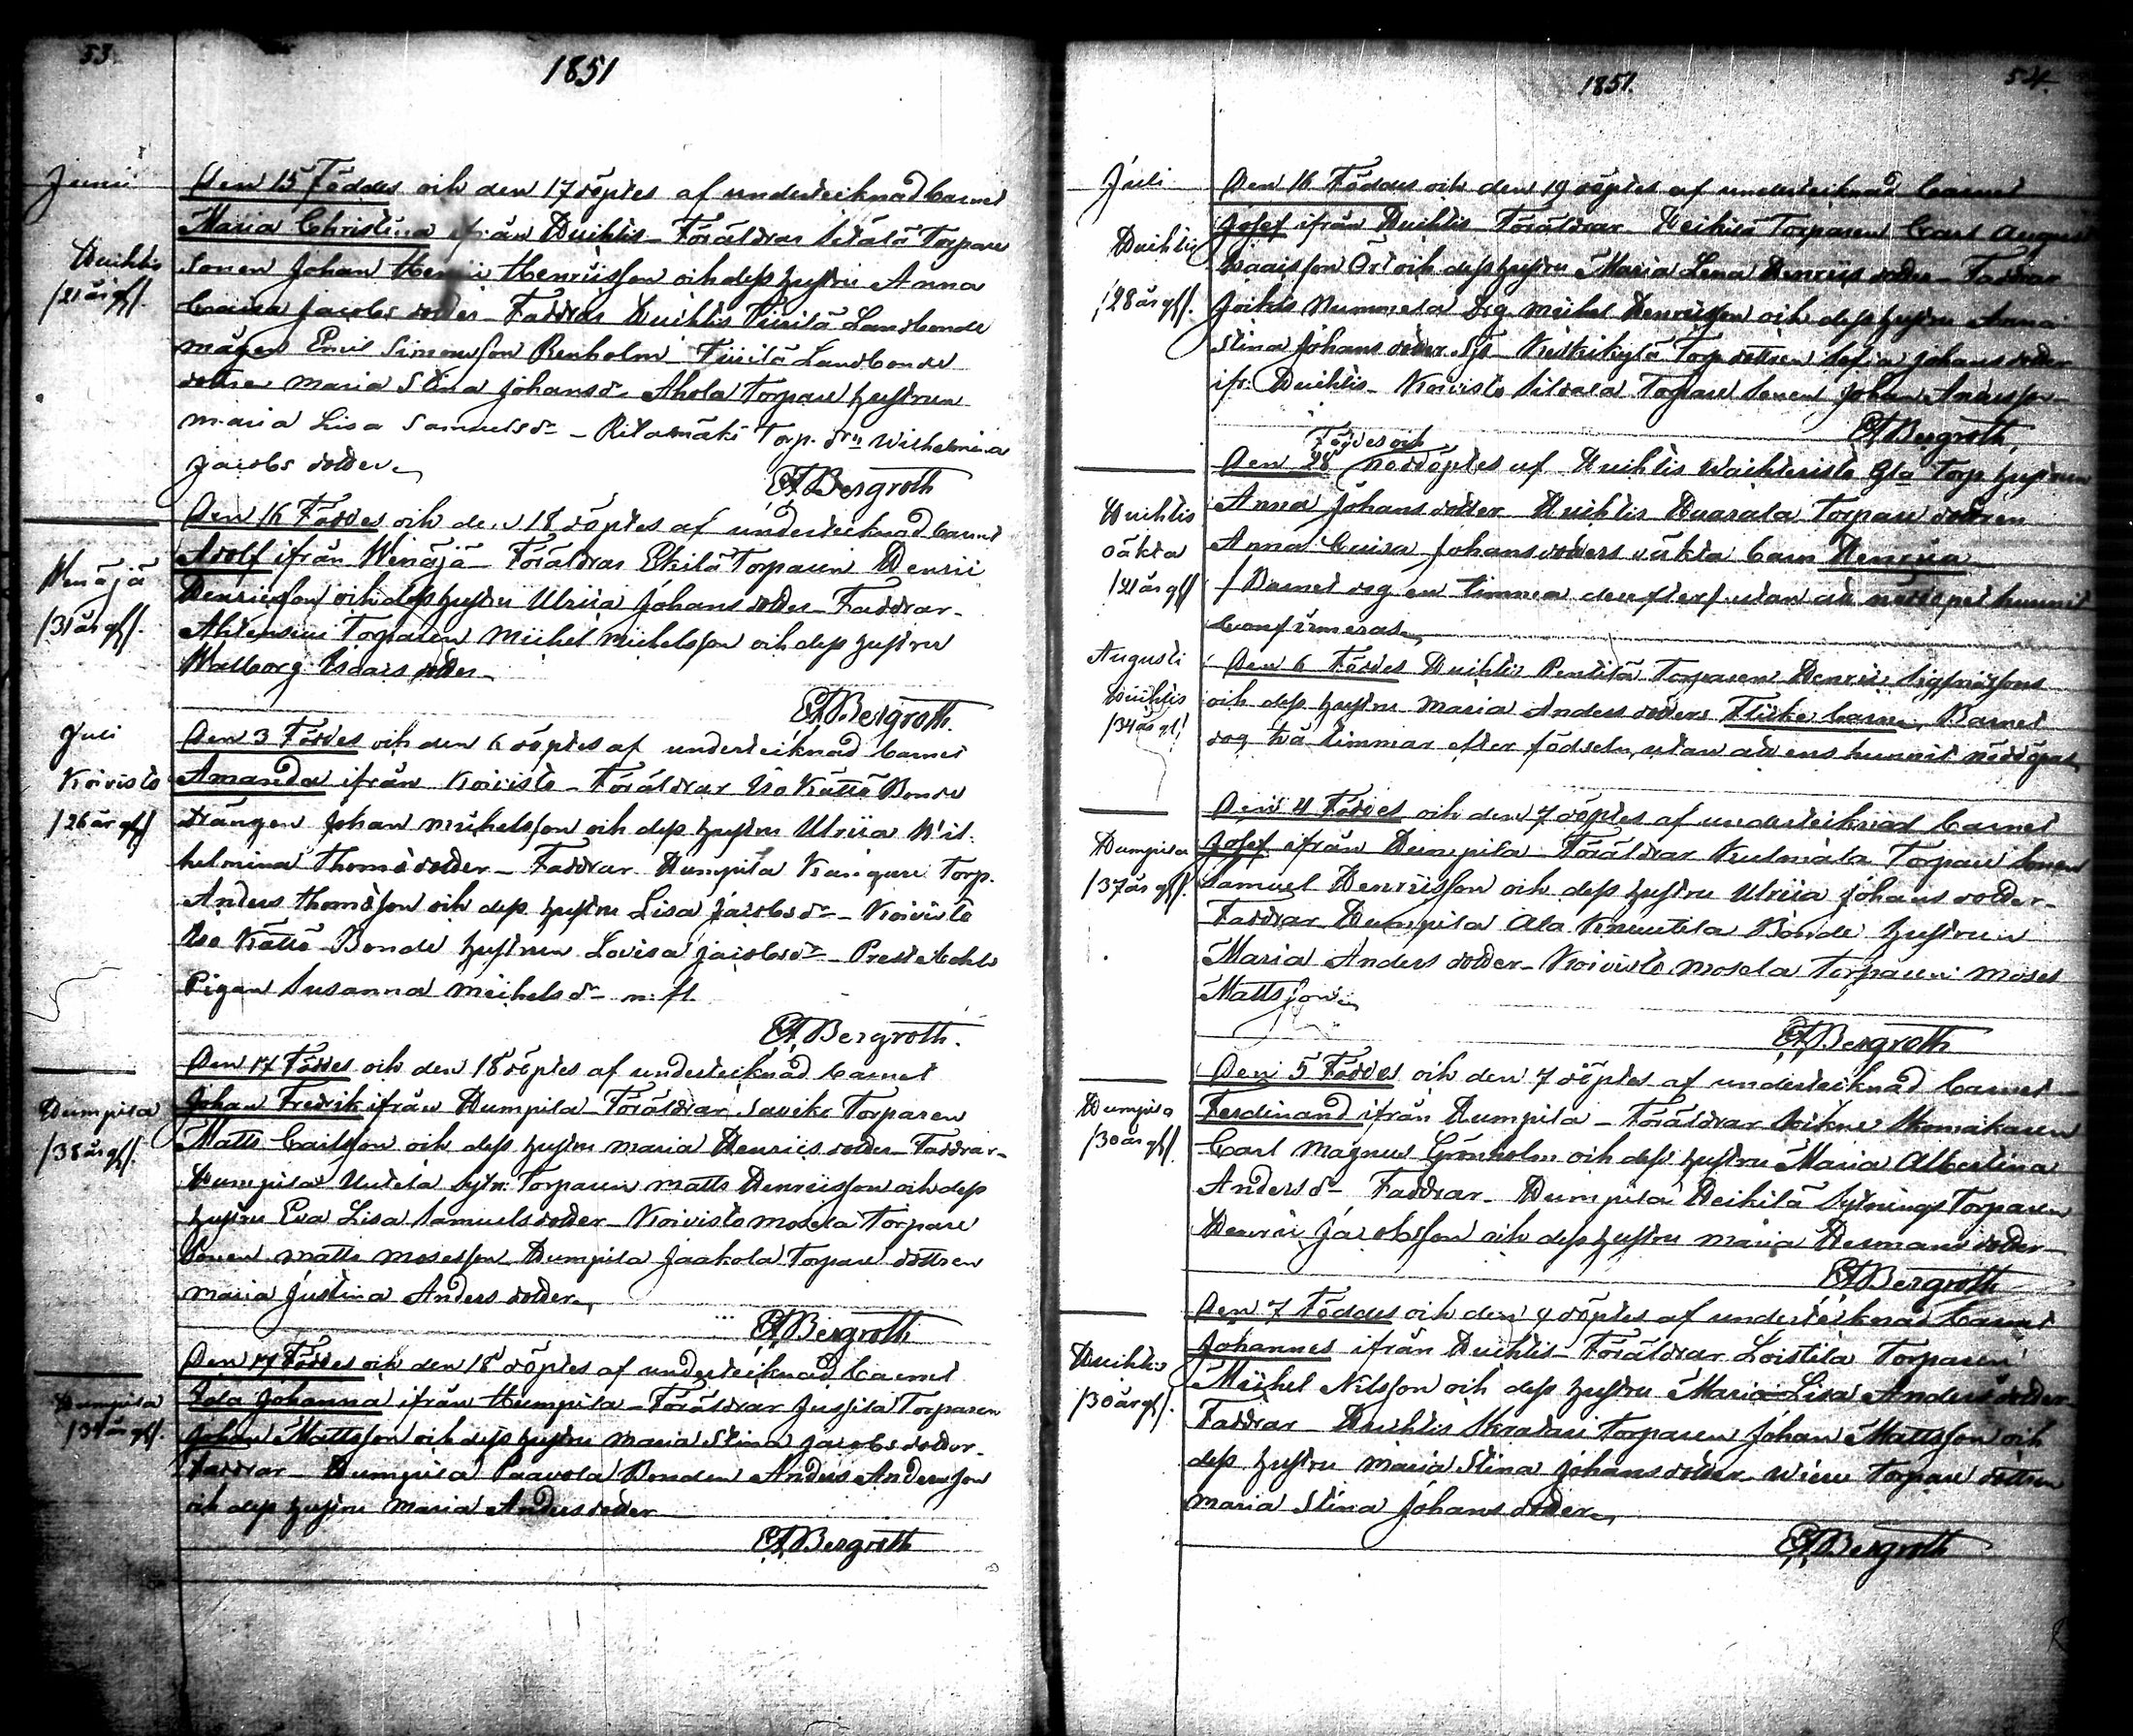 53.
1851
Junii
Den 15 Föddes och den 17 döptes af undertecknad barnet
Maria Christina ifrån Huihtis – Föräldrar Torpare
Huihtis
Sonen Johan Henricsson och dess hustru Anna
/21 år gl/.
Jacobs dotter – Faddrar Huihtis Landbonde
mågen Simonsson Renholm Landbonde
dottren Maria Stina Johansdr Ahola Torpare hustrun
Maria Lisa Samuelsdr – Ritamäki Torp. Wilhelmina
Jacobs dotter
Bergroth
Den 16 Föddes och den 18 döptes af undertecknad barnet
Wenäjä
Adolf ifrån Wenäjä – Föräldrar Torparen Henric
Henricsson och dess hustru Ulrica Johans dotter – Faddrar –
/31 år gl/.
Torparen Michel Michelsson och dess hustru
Walborg Isaacs dotter
Bergroth.
Juli
Den 3 Föddes och den 6 döptes af undertecknad barnet
Koivisto
Amanda ifrån Koivisto – Föräldrar Iso Kättö Bonde
/26 år gl/
Drängen Johan Michelsson och dess hustru Ulrica Wil-
helmina Thomædotter – Faddrar Humpila Torp.
Anders Thomæsson och dess hustru Lisa Jacobsdr – Koivisto
Iso Kättö Bonde hustrun Lovisa Jacobsdr –
Pigan Susanna Michelsdr m. fl.
Bergroth.
Den 17 Föddes och den 18 döptes af undertecknad barnet
Humpila
Johan Fredrik ifrån Humpila – Föräldrar Torparen
/38 år gl/.
Matts Carlsson och dess hustru Maria Henrics dotter – Faddrar –
Humpila Uutela Sytn. Torparen Matts Henricsson och dess
hustru Eva Lisa Samuelsdotter – Koivisto Mosela Torpare
Sonen Matts Mosesson Humpila Jaakola Torpare dottren
Maria Justina Anders dotter
Bergroth
Den 17 Föddes och den 18 döptes af undertecknad barnet
Humpila
Ida Johanna ifrån Humpila – Föräldrar Jussila Torparen
/34 år gl/.
Johan Mattsson och dess hustru Maria Stina Jacobs dotter –
Faddrar – Humpila Paavola Bonden Anders Andersson
och dess hustru Maria Anders dotter
Bergroth
1851.
54.
Juli
Den 16 Föddes och den 19 döptes af undertecknad barnet
Huihtis
Josef ifrån Huihtis – Föräldrar – Torparen Carl August
Isaacsson Ört och dess hustru Maria Lena Henrics dotter – Faddrar
/28 år gl/.
Jockis Nummela Drg. Michel Henricsson och dess hustru Anna
Stina Johans dotter Torp dottren Sofia Johans dotter
ifr. Huihtis – Koivisto Torpare Sonen Johan Andersson –
Bergroth
Föddes och
Den 28 nöddöptes af Huihtis Torp hustrun
Huihtis
Anna Johans dotter Huihtis Torpare dottren
oäkta
Anna Johansdotters oäkta barn Henrica
/21 år gl/
/ Barnet dog en timma derefter utan att nöddopet hunnit
confirmeras
Augusti
Den 6 Föddes Huihtis Penttilä Torparen Henric Sigfridssons
Huihtis
och dess hustru Maria Anders dotters Flicke barn, Barnet
/34 år gl/
dog två timmar efter födseln, utan att ens hunnit nöddöpas
Den 4 Föddes och den 7 döptes af undertecknad barnet
Humpila
Josef ifrån Humpila – Föräldrar Torpare Sonen
/37 år gl/.
Samuel Henricsson och dess hustru Ulrica Johans dotter –
Faddrar Humpila Ala Knuutila Bonde hustrun
Maria Anders dotter – Koivisto Mosela Torparen Moses
Mattsson
Bergroth
Den 5 Föddes och den 7 döptes af undertecknad barnet
Humpila
Ferdinand ifrån Humpila – Föräldrar Skomakaren
/30 år gl/.
Carl Magnus Grönholm och dess hustru Maria Albertina
Andersdr – Faddrar – Humpila Heikilä Sytnings Torparen
Henric Jacobsson och dess hustru Maria Hermans dotter
Bergroth
Den 7 Föddes och den 9 döptes af undertecknad barnet
Huihtis
Johannes ifrån Huihtis – Föräldrar Loistila Torparen
/30 år gl/.
Michel Nilsson och dess hustru Maria Lisa Anders dotter
Faddrar – Huihtis Torparen Johan Mattsson och
dess hustru Maria Stina Johans dotter Torpare dottren
Maria Stina Johans dotter
Bergroth